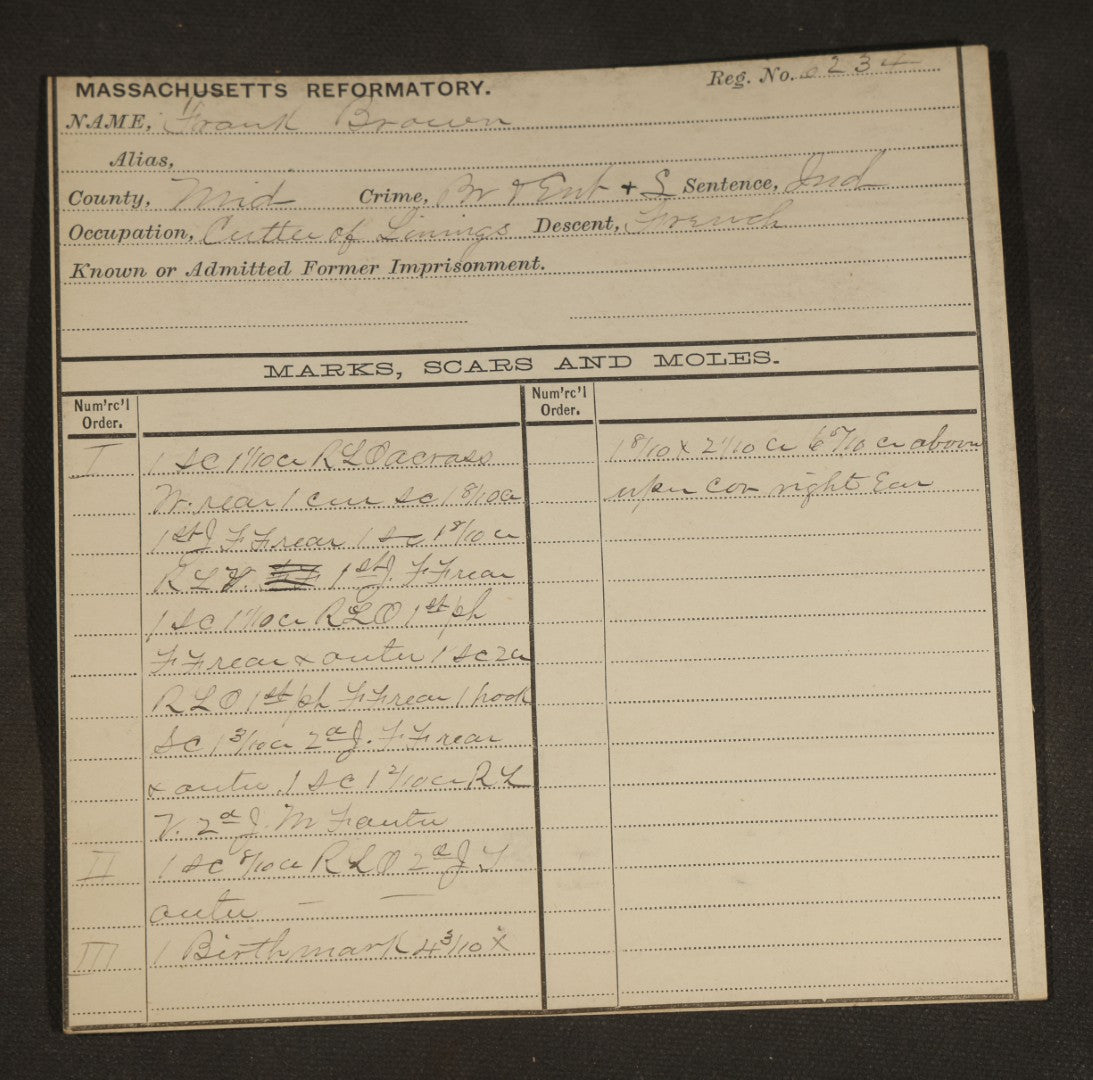 MASSACHUSETTS REFORMATORY.
Reg. No. 6234
NAME, Frank Brown
Alias,
County, Mid Crime, Br & Ent + L Sentence, Ind
Occupation, Cutter of Linings Descent, French
Known or Admitted Former Imprisonment.
MARKS, SCARS AND MOLES.
Num'rc'l Order.
Num'rc'l Order.
I 1 sc 1 1/10 cu R L O across
W. rear 1 cur sc 1 8/10 cu
1st J F F rear 1 sc 1 8/10 cu
R L V. 1st J. F F rear
1 sc 1 1/10 cu R L O 1st ph
F F rear & outer 1 sc 2 cu
R L O 1st ph F F rear 1 hook
sc 1 3/10 cu 2d J. F F rear
& outer. 1 sc 1 2/10 cu R L
V. 2d J. M F outer
II 1 sc 8/10 cu R L O 2d J
outer — —
III 1 Birthmark 4 3/10 x
1 8/10 x 2 1/10 cu 6 5/10 cu above
upper con right Ear